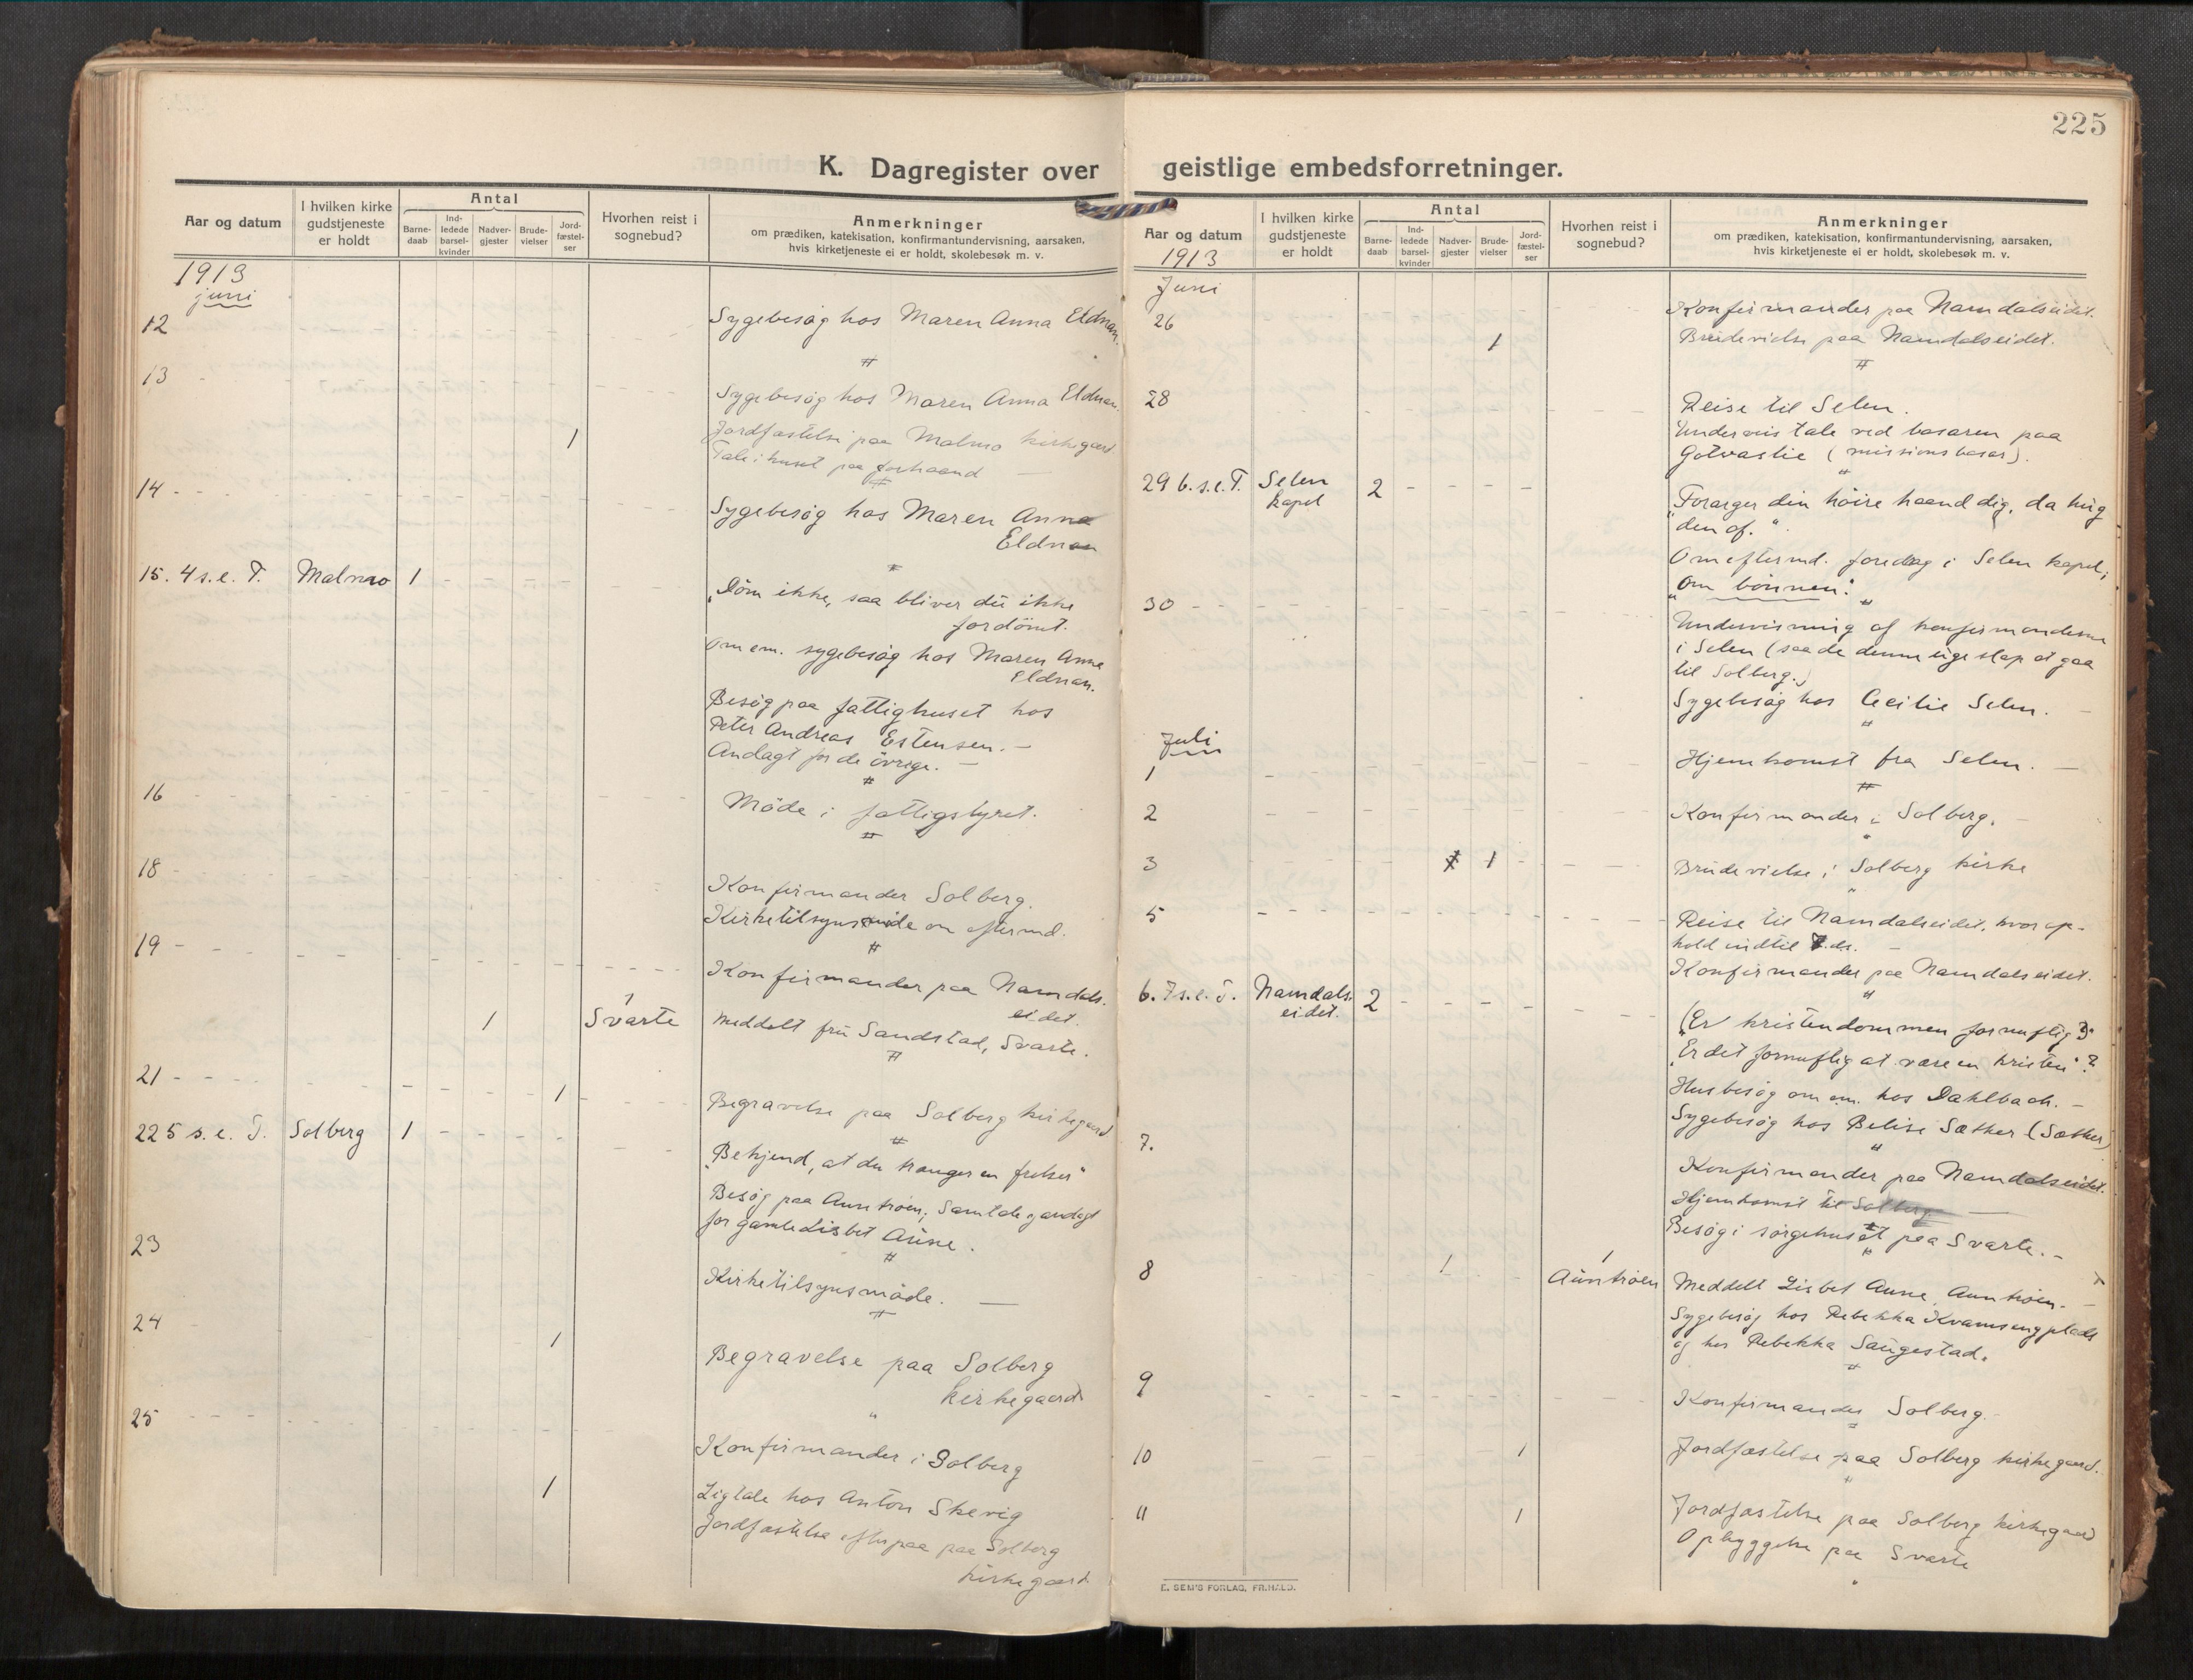 225
K. Dagregister over geistlige embedsforretninger.
Aar og datum
I hvilken kirke gudstjeneste er holdt
Antal
Barne-daab
Ind-ledede barsel-kvinder
Nadver-gjester
Brude-vielser
Jord-fæstel-ser
Hvorhen reist i sognebud?
Anmerkninger
om prædiken, katekisation, konfirmantundervisning, aarsaken,
hvis kirketjeneste ei er holdt, skolebesøk m. v.
1913
juni
12 Sygebesøg hos Maren Anna Eldnan.
13 Sygebesøg hos Maren Anna Eldnan.
1 Jordfæstelse paa Malmo kirkegaard.
Tale i huset paa forhaand
14 Sygebesøg hos Maren Anna
Eldnan
15. 4 s.e. T. Malmo 1
"Döm ikke, saa bliver du ikke
fordömt.
Om em. sygebesøg hos Maren Anna
Eldnan.
Besøg paa fattighuset hos
Peter Andreas Estensen. –
Andagt for de övrige. –
16 Möde i fattigstyret.
18 Konfirmander Solberg.
Kirketilsynsmöde om eftermd.
19 Konfirmander paa Namdals.
eidet.
1 1 Svarte Meddelt fru Sandstad, Svarte.
21 1 Begravelse paa Solberg kirkegaard
22 5 s.e. T. Solberg 1
"Bekjend, at du trænger en frelser"
Besøg paa Aunetrøen, Samtale og andagt
for gamle Lisbet Aune.
23 Kirketilsynsmöde. –
24 1 Begravelse paa Solberg
kirkegaard
25 Konfirmander i Solberg
1 Ligtale hos Anton Skevig
Jordfæstelse efterpaa paa Solberg
kirkegaard.
Aar og datum
I hvilken kirke gudstjeneste er holdt
Antal
Barne-daab
Ind-ledede barsel-kvinder
Nadver-gjester
Brude-vielser
Jord-fæstel-ser
Hvorhen reist i sognebud?
Anmerkninger
om prædiken, katekisation, konfirmantundervisning, aarsaken,
hvis kirketjeneste ei er holdt, skolebesøk m. v.
1913
Juni
26 Konfirmander paa Namdalseidet.
1 Brudevielse paa Namdalseidet.
28 Reise til Selen.
tale ved basaren paa
(missionsbasar).
29 6. s.e.T. Selen kapel 2
"Forarger din höire haand dig, da hug
den af."
Om eftermd. foredrag i Selen kapel,
"Om bönnen".
30 Undervisning af konfirmanderne
i Selen (saa de denne uge slap at gaa
til Solberg.)
Sygebesøg hos Cecilie Selen. –
Juli
1 Hjemkomst fra Selen. –
2 Konfirmander i Solberg. –
3 1 Brudevielse i Solberg kirke
5 Reise til Namdalseidet, hvor op-
hold indtil 7. ds. –
Konfirmander paa Namdalseidet.
6. 7 s.e. T. Namdals.eidet. 2
(Er kristendommen fornuftig?)
"Er det fornuftig at være en kristen"?
Husbesøg om em. hos Dahlbach. –
Sygebesøg hos Belise Sæther (Sæther)
7. Konfirmander paa Namdalseidet.
Hjemkomst til Solberg –
Besøg i sørgehuset paa Svarte. –
8 1 1 Auntrøen Meddelt Lisbet Aune, Auntrøen. –
Sygebesøg hos Rebekka Kvamsengplads
og hos Rebekka Saugestad.
9 Konfirmander Solberg. –
10 1 Jordfæstelse paa Solberg kirkegaard.
11 1 Jordfæstelse paa Solberg kirkegaard
Opbyggelse paa Svarte
E. SEM'S FORLAG, FR.HALD.